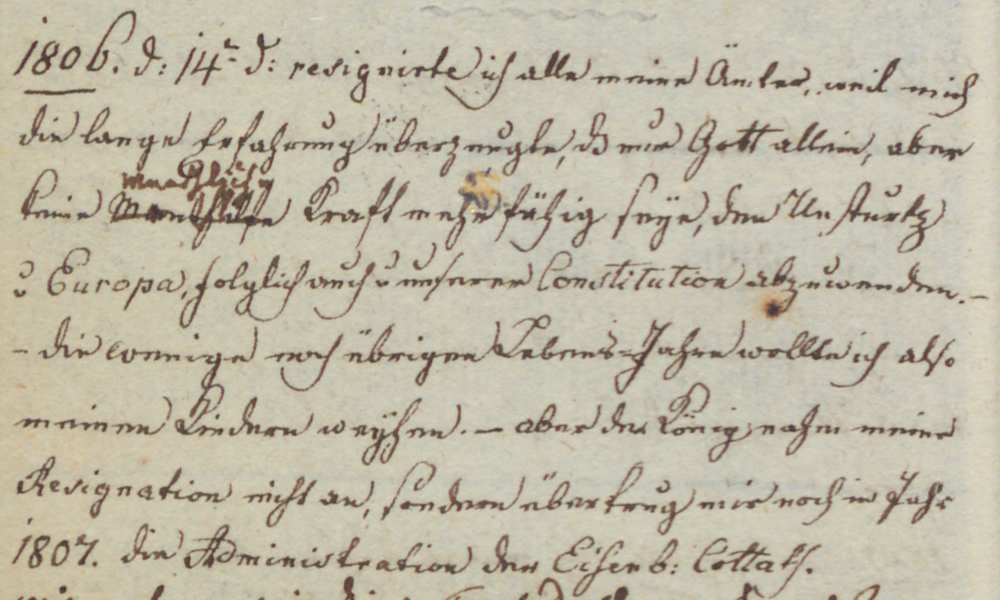 1806. d: 14t d: resignirte ich alle meine Ämter, weil mich
die lange Erfahrung überzeugte, dß nur Gott allein, aber
keine menschliche Kraft mehr fähig seye, den Umsturtz
v Europa, folglich auch v unserer Constitution abzuwenden. –
– die wenige noch übrigen Lebens-Jahre wollte ich also
meinen Kindern weyhen. – aber der König nahm meine
Resignation nicht an, sondern übertrug mir noch im Jahr
1807. die Administration der Eisenb: Cottats.